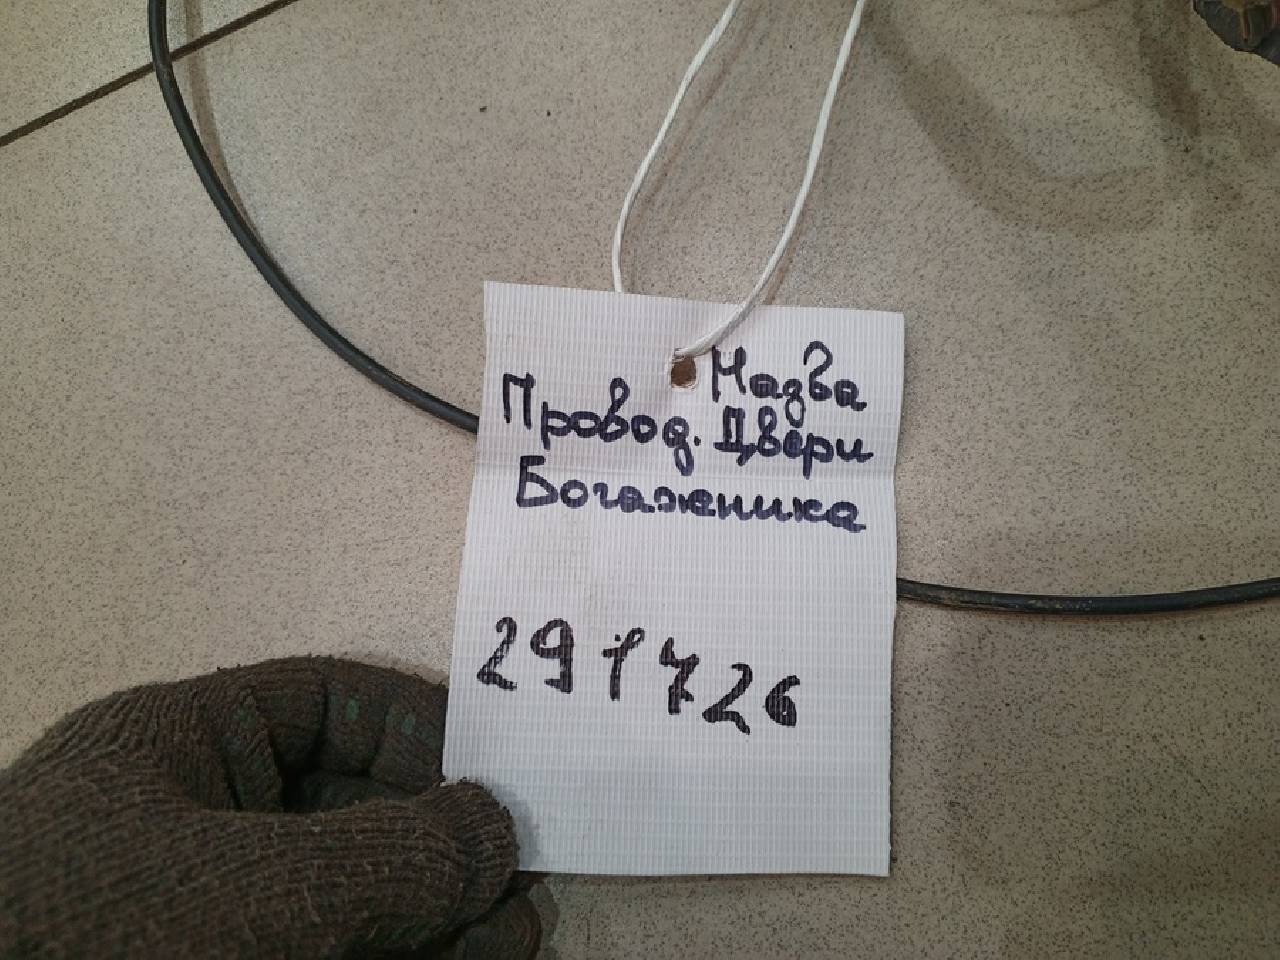 Мазда
Провод. Двери
Богажника
291726